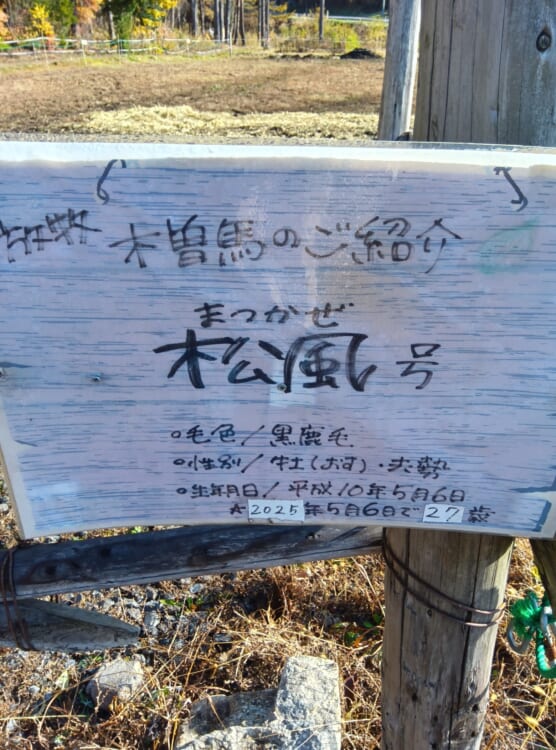 木曽馬のご紹介
まつかぜ
松風号
○毛色/黒鹿毛
○性別/牡(おす)・去勢
○生年月日/平成10年5月6日
☆2025年5月6日で27歳